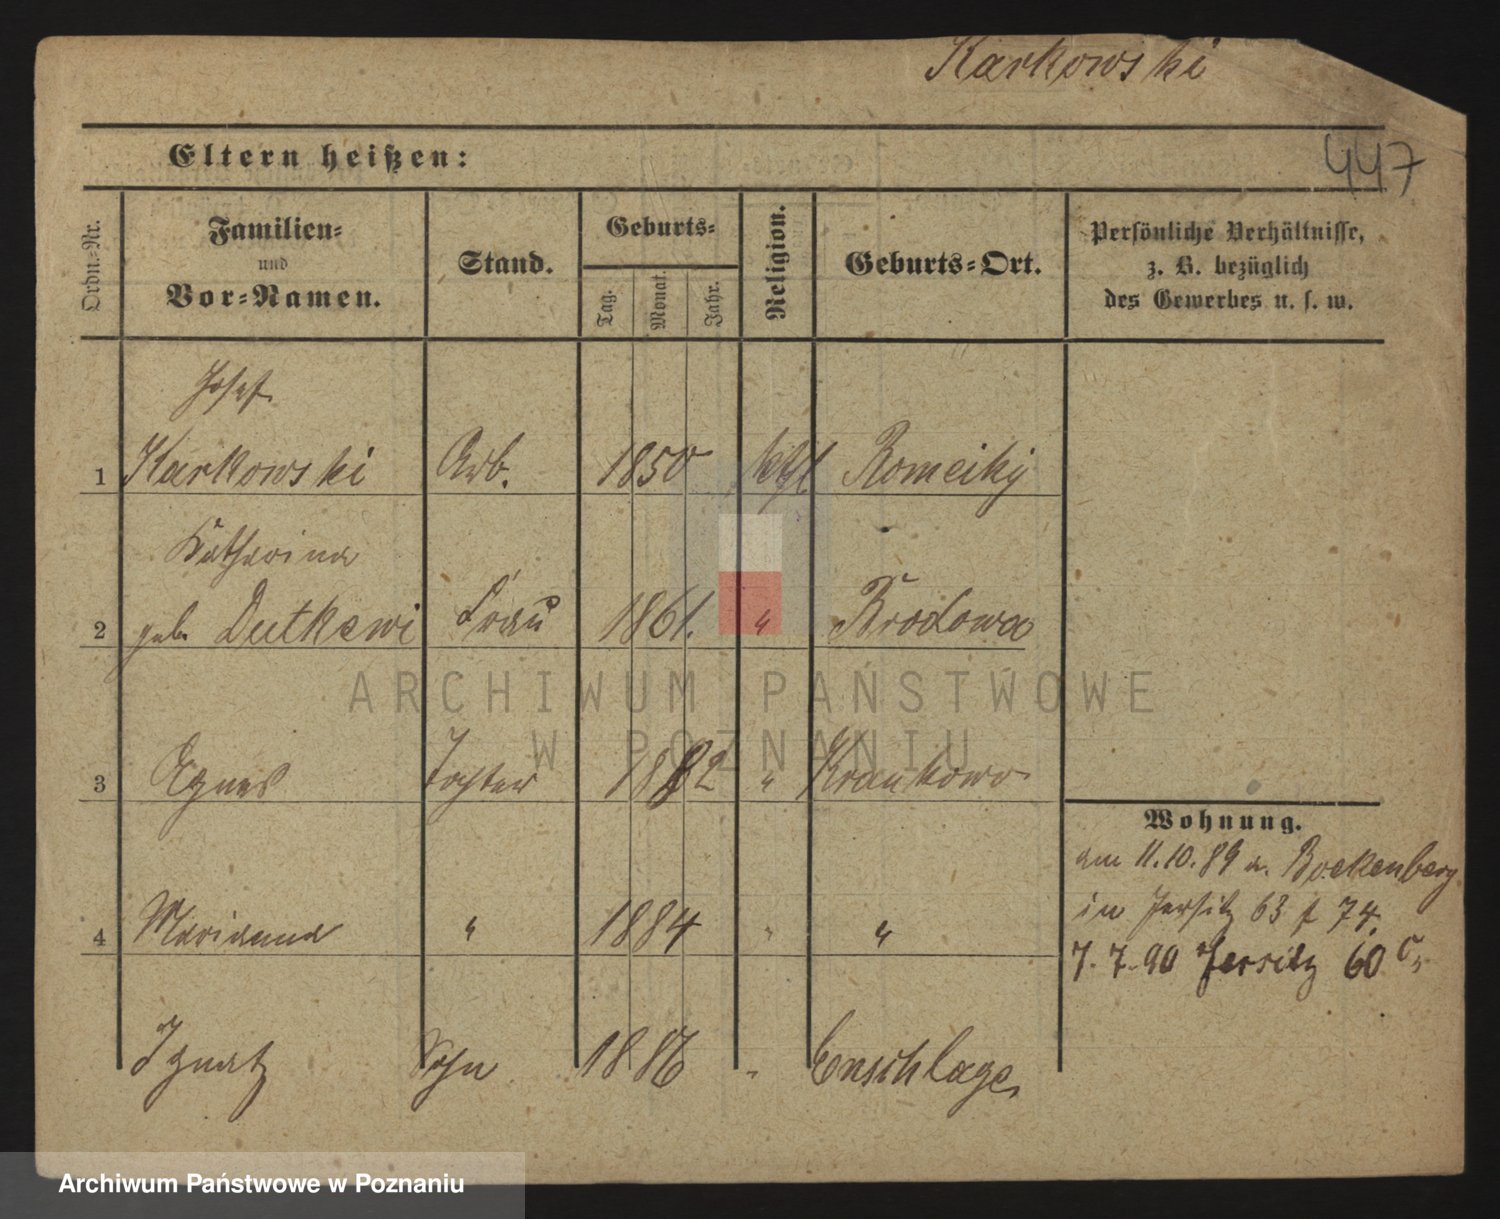 Karkowski
447
Eltern heißen:
Ordn.-Nr.
Familien-
und
Vor-Namen.
Stand.
Geburts-
Tag.
Monat.
Jahr.
Religion.
Geburts-Ort.
Persönliche Verhältnisse,
z. B. bezüglich
des Gewerbes u. s. w.
Josef
1 Karkowski Arb. 1850 kthl Romeiky
Katharina
2 geb. Dutkewi Frau 1861. " Brodowo
3 Agnes Tochter 1882 " Krankowo
4 Marianna " 1884 " "
Ignatz Sohn 1886 " Enschlage
Wohnung.
am 11.10.89 n. Bockenberg
in Jersitz 63 f 74.
7.7.90 Jersitz 60
ARCHIWUM PAŃSTWOWE
W POZNANIU
Archiwum Państwowe w Poznaniu